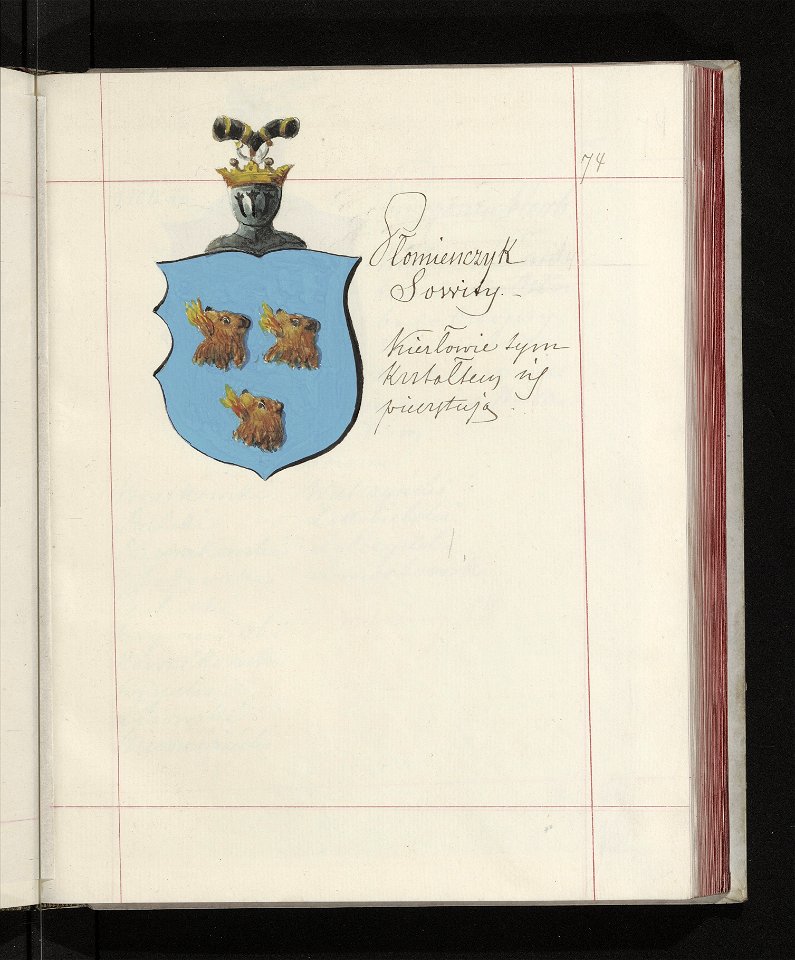 74
Płomienczyk
Sowity.
Kierłowie tym
Kształtem się
pieczętują.